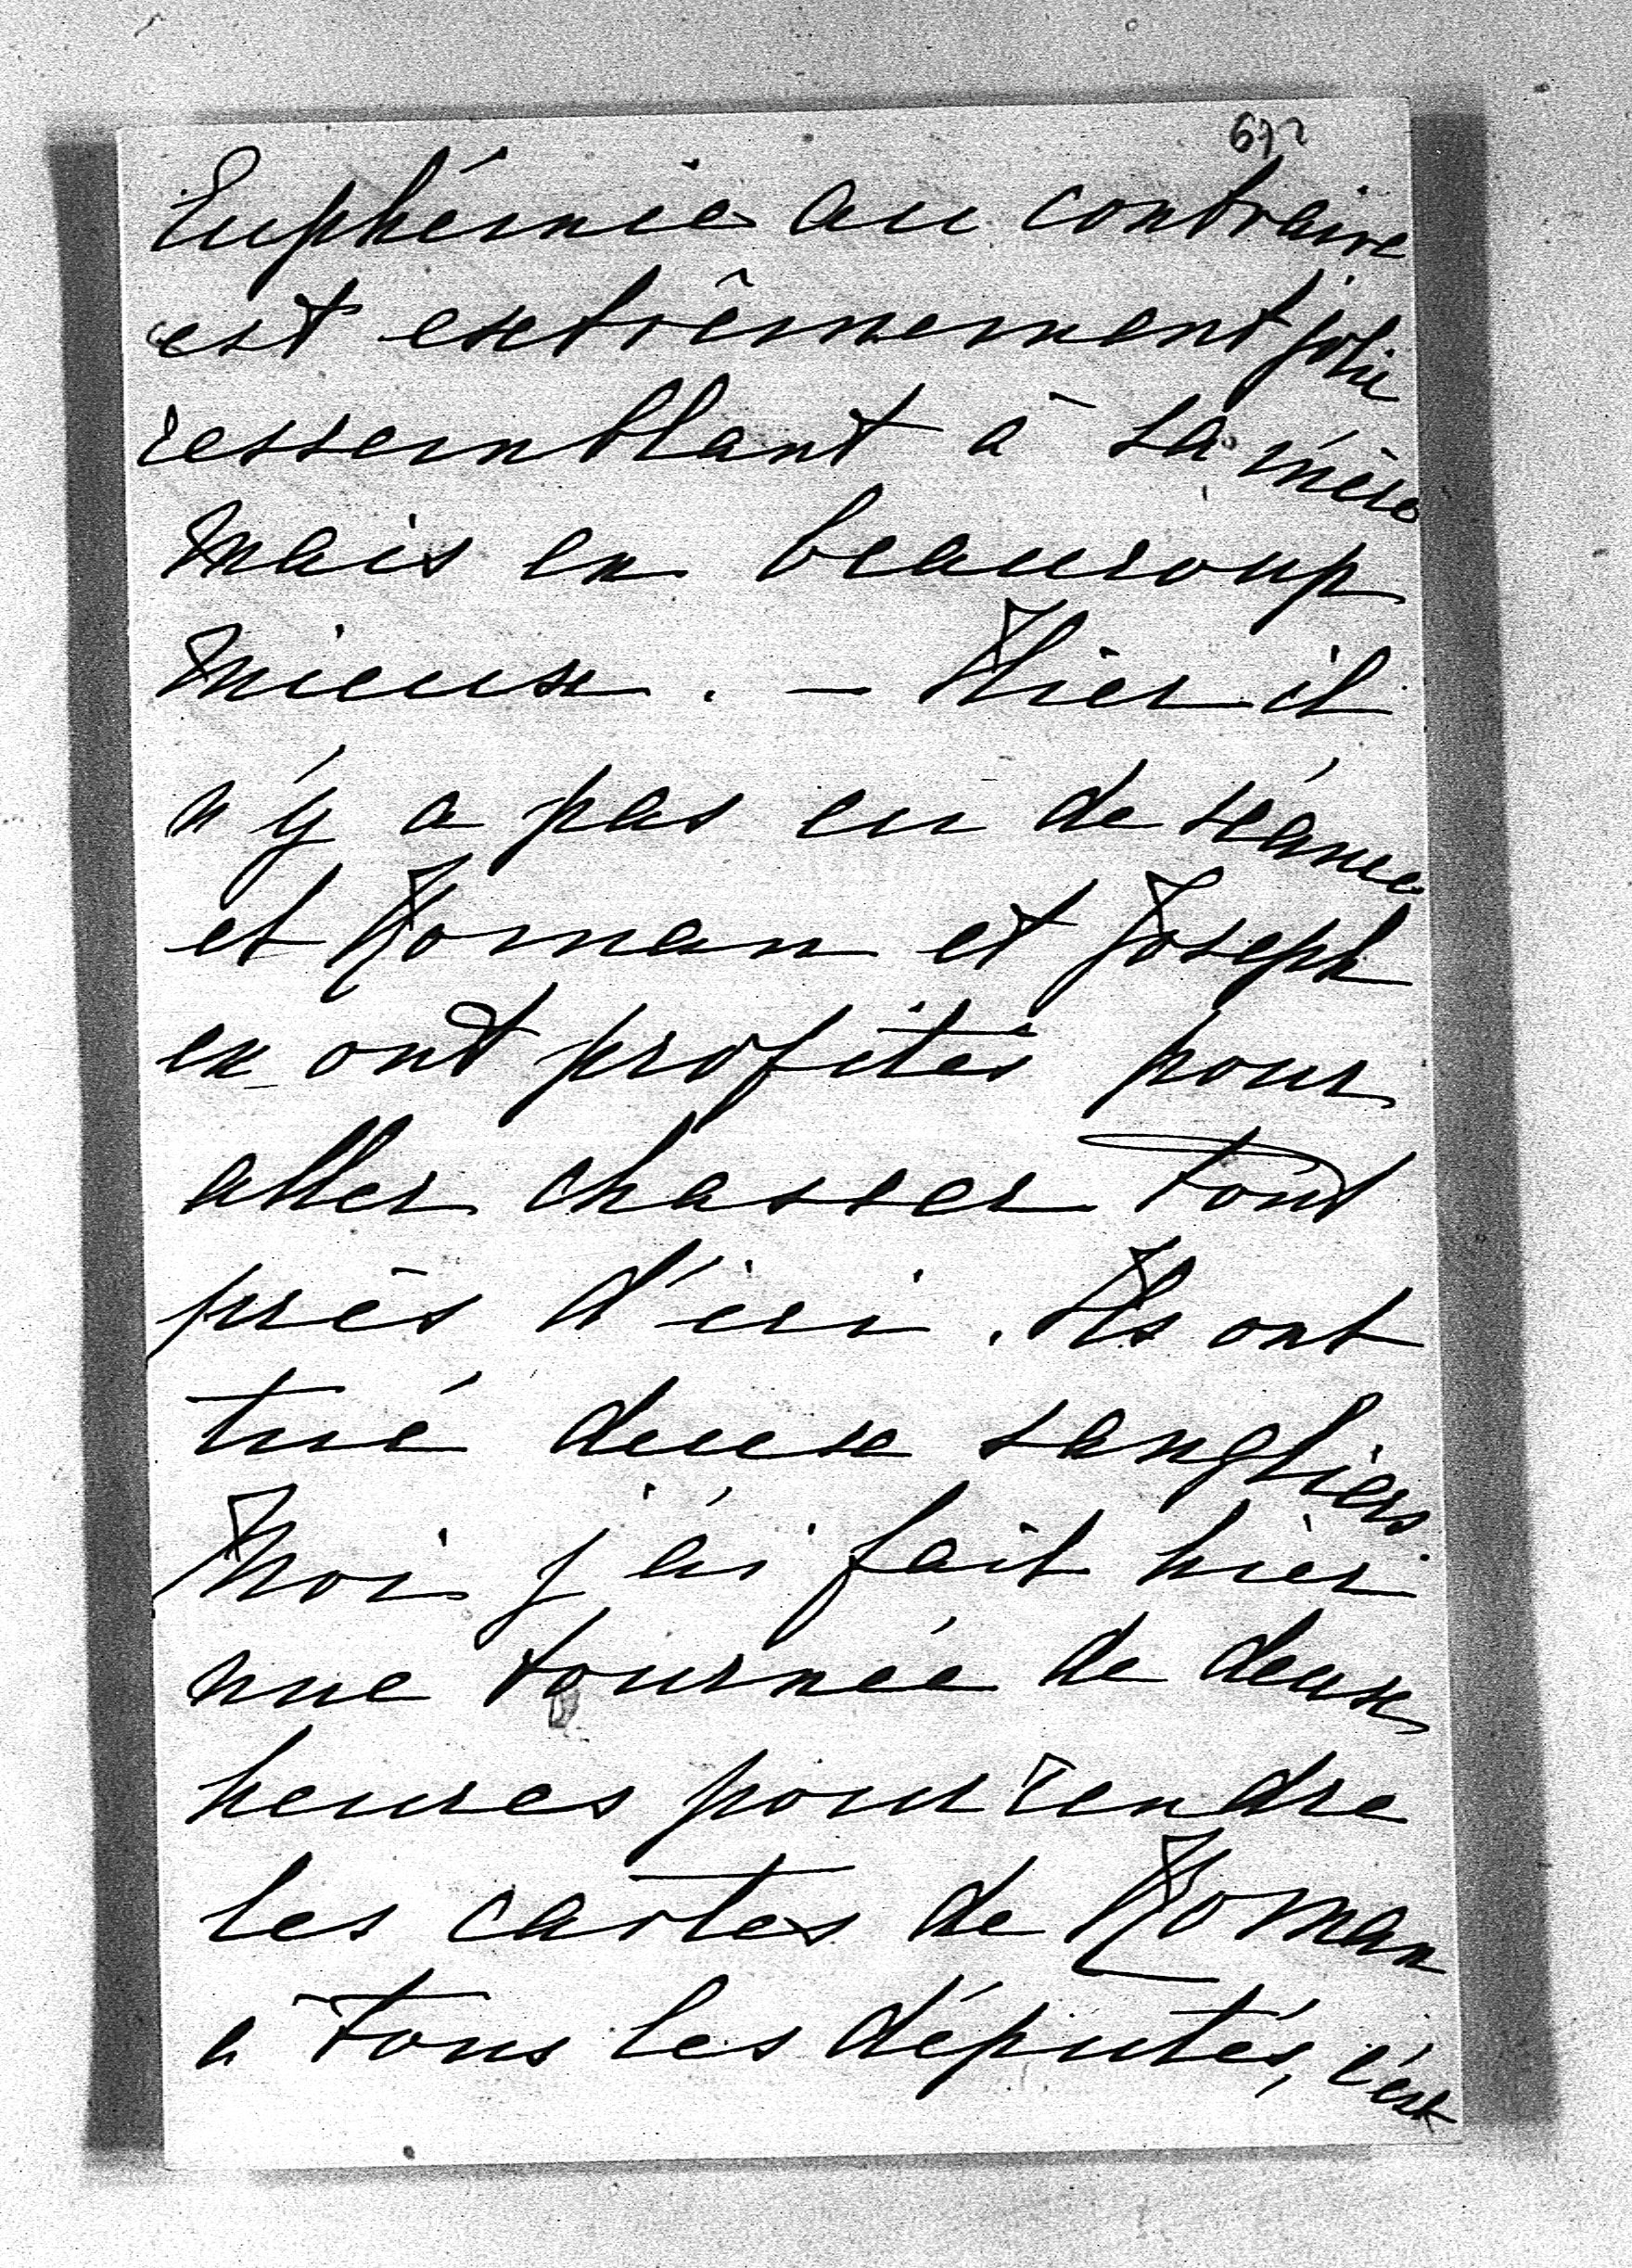 Euphémie au contraire
est extrêmement jolie
ressemblant à sa mère
mais en beaucoup
mieux. — Hier il
n'y a pas eu de séance
et Roman et Joseph
en ont profités pour
aller chasser tout
près d'ici. Ils ont
tué deux sangliers
Moi j'ai fait hier
une tournée de deux
heures pour rendre
les cartes de Roman
à tous les députés, c'est